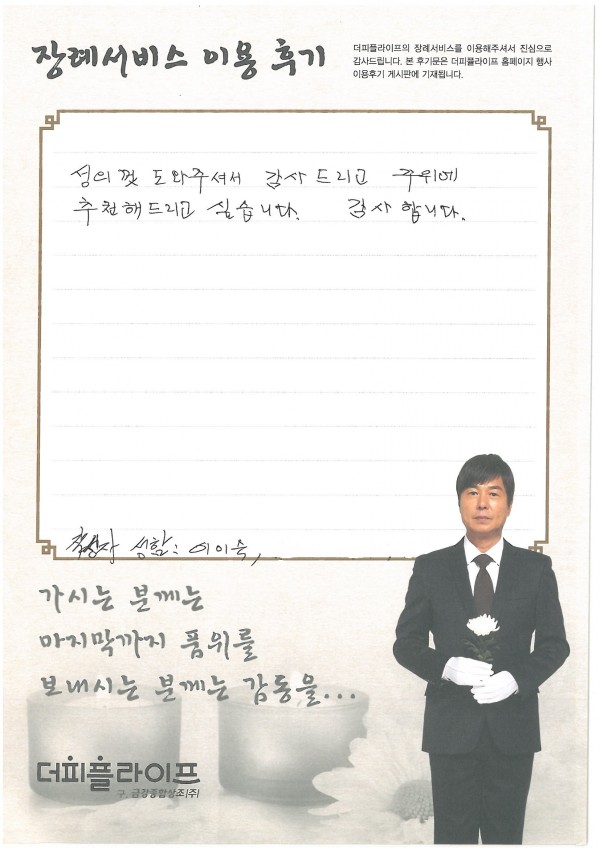 장례서비스 이용 후기
더피플라이프의 장례서비스를 이용해주셔서 진심으로
감사드립니다. 본 후기문은 더피플라이프 홈페이지 행사
이용후기 게시판에 기재됩니다.
성의껏 도와주셔서 감사드리고 주위에
추천해드리고 싶습니다. 감사합니다.
작성자 성함: 이이숙,
가시는 분께는
마지막까지 품위를
보내시는 분께는 감동을...
더피플라이프
구. 금강종합상조(주)